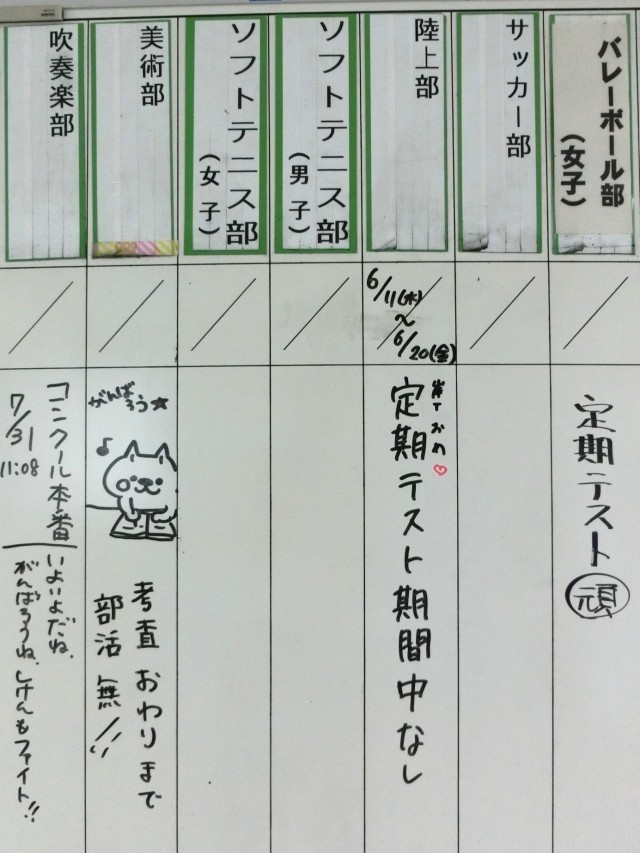 バレーボール部
（女子）
定期テスト
頑
サッカー部
陸上部
6/11(水)
〜
6/20(金)
定期テスト期間中なし
ソフトテニス部
（男子）
ソフトテニス部
（女子）
美術部
がんば
ろう☆
考査おわりまで
部活無!!
吹奏楽部
コンクール本番
7/31
11:08
いよいよだね、
がんばろうね、しけんもファイト!!